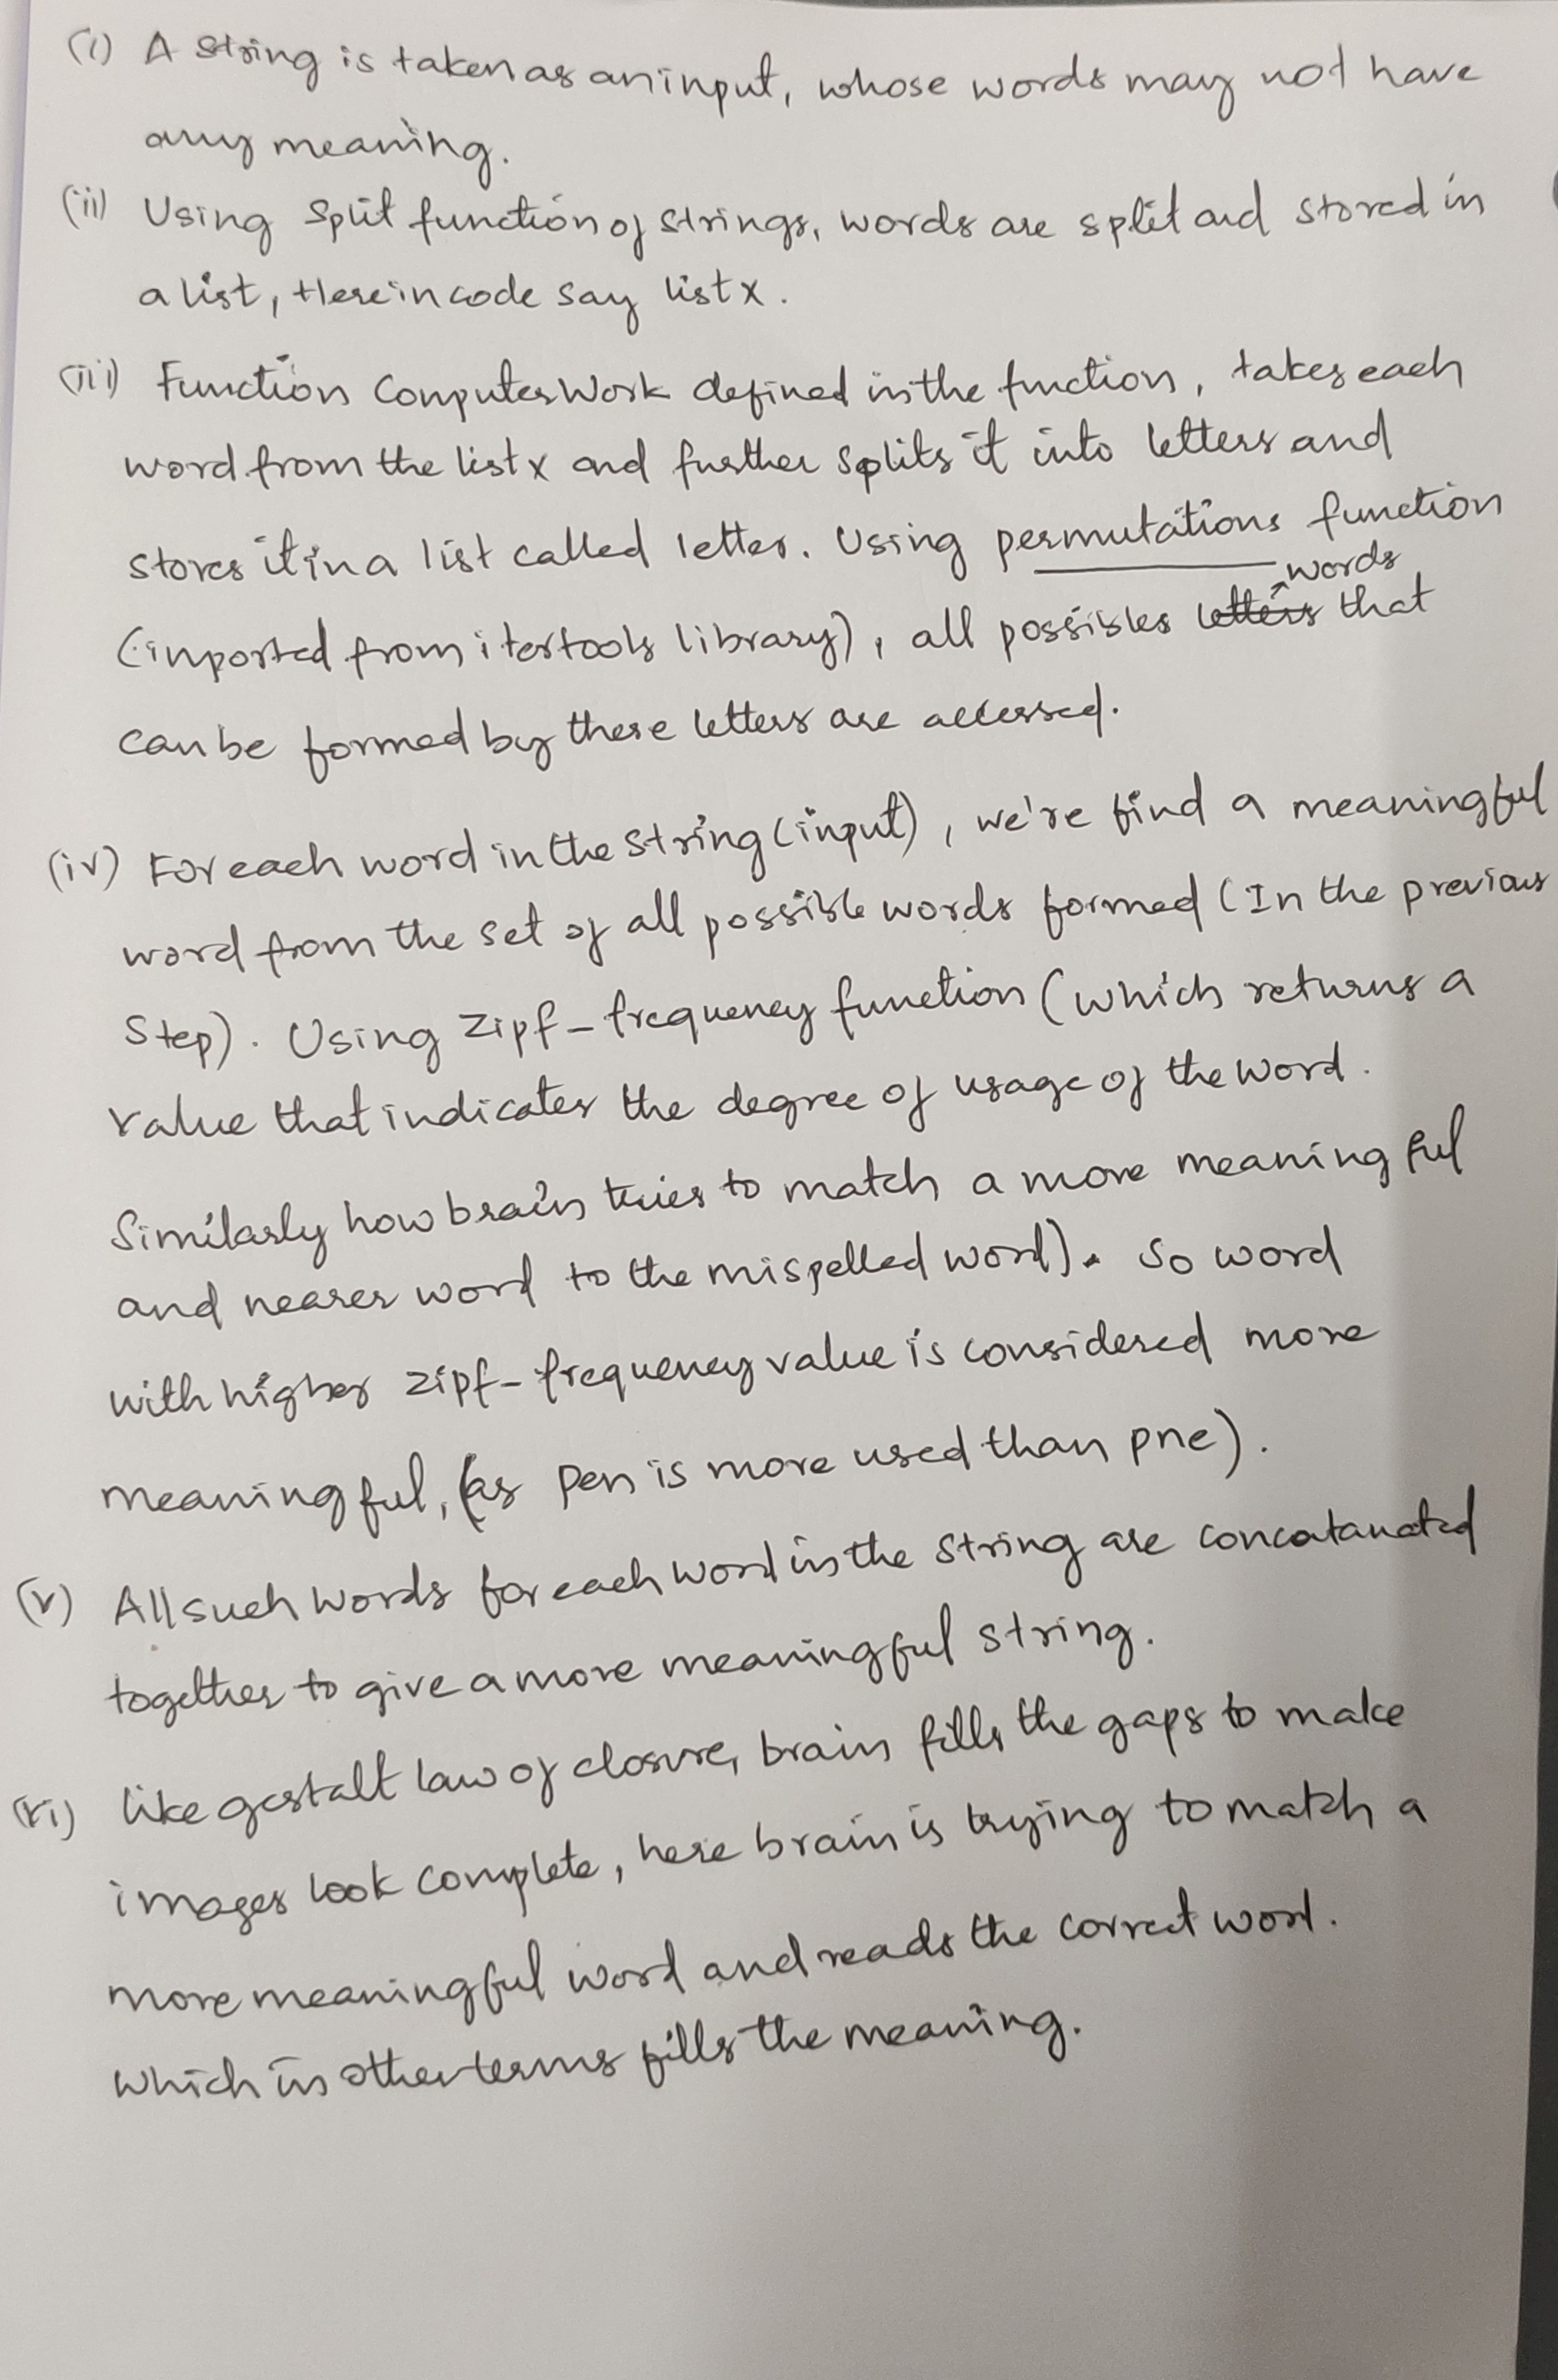 (i) A string is taken as an input, whose words may not have
any meaning.
(ii) Using split function of strings, words are split and stored in
a list, Here in code say listx.
(iii) Function ComputerWork defined in the function, takes each
word from the listx and further splits it into letters and
stores it in a list called letter. Using permutations function
(imported from itertools library), all possibles letters words that
can be formed by these letters are accessed.
(iv) For each word in the string (input), we're find a meaningful
word from the set of all possible words formed (In the previous
Step). Using zipf-frequency function (which returns a
value that indicates the degree of usage of the word.
Similarly how brain tries to match a more meaningful
and nearer word to the mispelled word). So word
with higher zipf-frequency value is considered more
meaningful, (as pen is more used than pne).
(v) All such words for each word in the string are concatanated
together to give a more meaningful string.
(vi) like gestalt law of closure, brain fills the gaps to make
images look complete, here brain is trying to match a
more meaningful word and reads the correct word.
which in other terms fills the meaning.